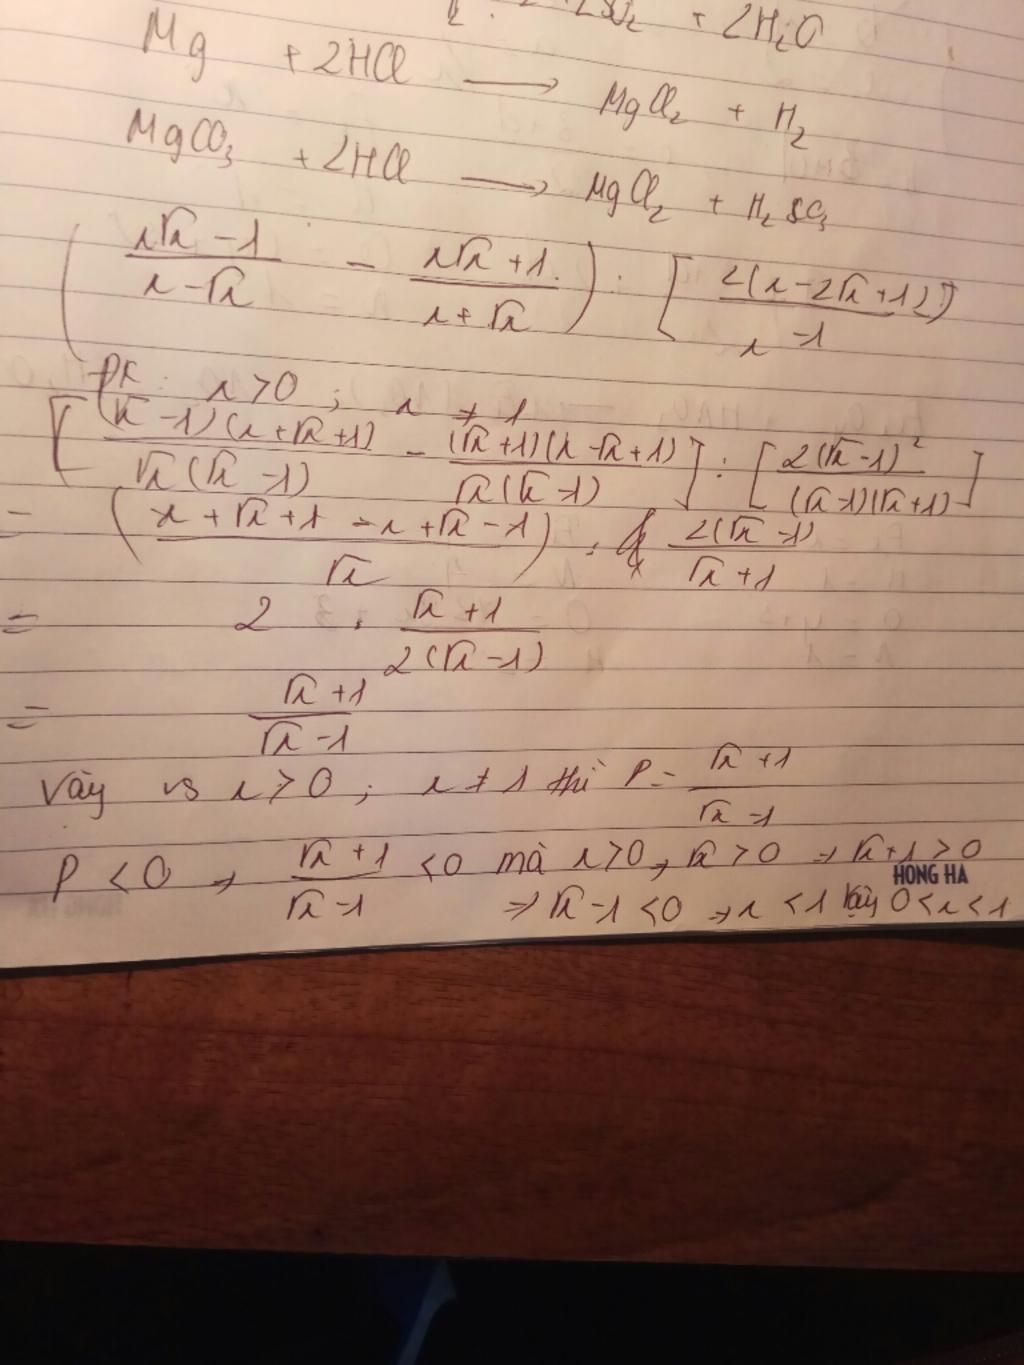 + 2H₂O
Mg + 2HCl ⟶ MgCl₂ + H₂
MgCO₃ + 2HCl ⟶ MgCl₂ + H₂SO₃
( (x√x - 1)/(x - √x) - (x√x + 1)/(x + √x) ) : [ 2(x - 2√x + 1)/(x - 1) ]
ĐK: x > 0 ; x ≠ 1
[ (√x - 1)(x + √x + 1)/(√x(√x - 1)) - (√x + 1)(x - √x + 1)/(√x(√x - 1)) ] : [ 2(√x - 1)²/((√x - 1)(√x + 1)) ]
= ( (x + √x + 1 - x + √x - 1)/√x ) : 2(√x - 1)/(√x + 1)
= 2 . (√x + 1)/(2(√x - 1))
= (√x + 1)/(√x - 1)
Vậy vs x > 0 ; x ≠ 1 thì P = (√x + 1)/(√x - 1)
P < 0 ⇒ (√x + 1)/(√x - 1) < 0 mà x > 0, √x > 0 ⇒ √x + 1 > 0
HONG HA
⇒ √x - 1 < 0 ⇒ x < 1 Vậy 0 < x < 1